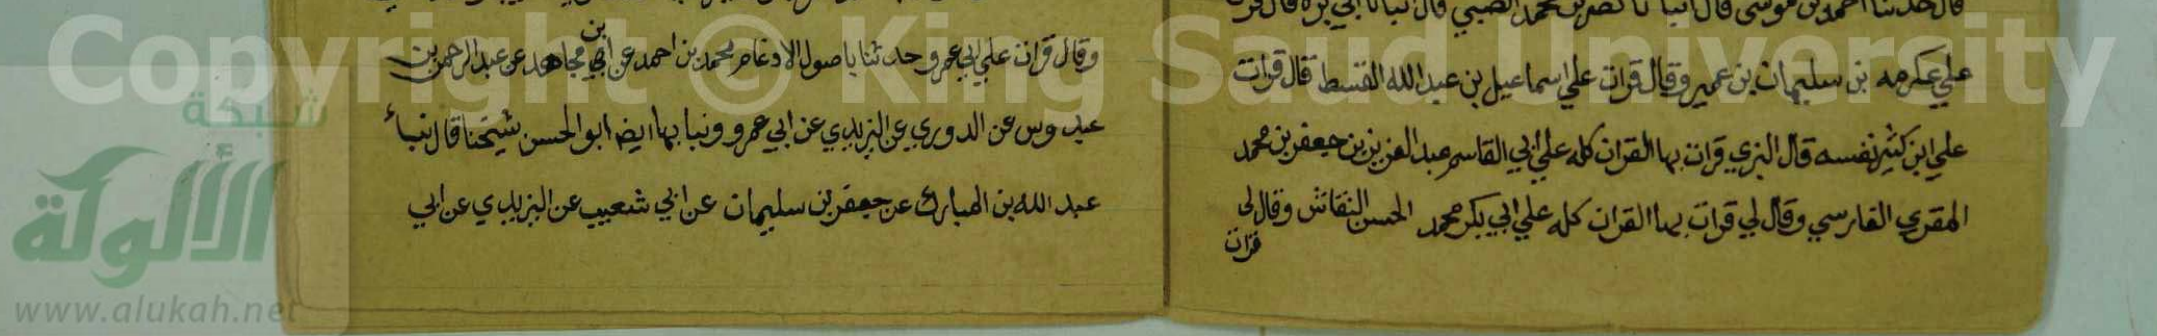 قال حدثنا احمد بن موسى قال انبا نا نصر بن محمد الضبي قال انبا نا ابي بزه قال قرات
علي عكرمه بن سليمان بن عمير وقال قرات علي اسماعيل بن عبد الله القسط قال قرات
علي ابن كثير نفسه قال البزي قرات بها القران كله علي ابي القاسم عبد العزيز بن جعفر بن محمد
المقري الفارسي وقال لي قرات بها القران كله علي ابي بكر محمد الحسن النقاش وقال لي
قرات
وقال قرات علي ابي عمرو حدثنا باصول الادغام محمد بن احمد عن ابن مجاهد عن عبد الرحمن بن
عبدوس عن الدوري عن اليزيدي عن ابي عمرو ونبا بها ايضا ابو الحسن شيخنا قال نباء
عبد الله بن المبارك عن جعفر بن سليمان عن ابي شعيب عن اليزيدي عن ابي
Copyright © King Saud University
شبكة
الألوكة
www.alukah.net